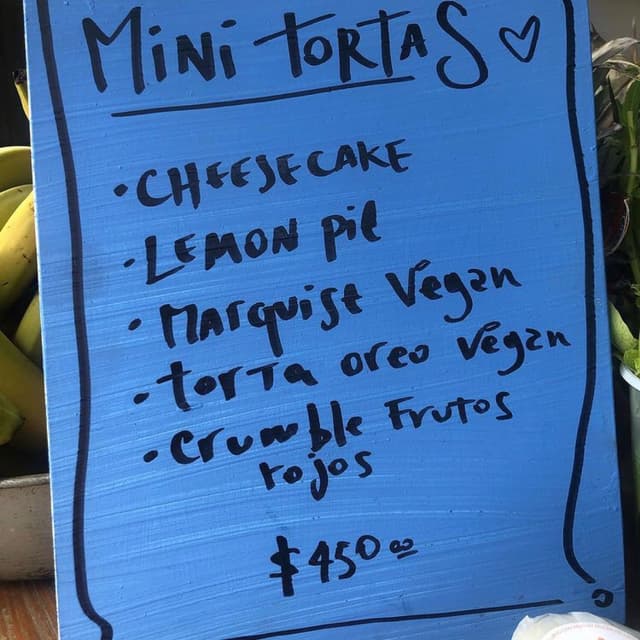 MiNi TORTAS ♡
• CHEESECAKE
• LEMON Pie
• MArquise Vegan
• torTa oreo Vegan
• Crumble Frutos
rojos
$450 00